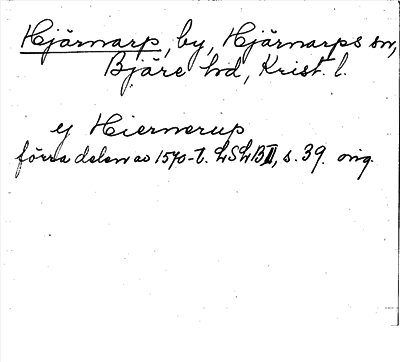 Hjärnarp, by, Hjärnarps sn,
Bjäre hd, Krist. l.
ej Hiernerup
förra delen av 1570-t. LSLBII, s. 39. orig.